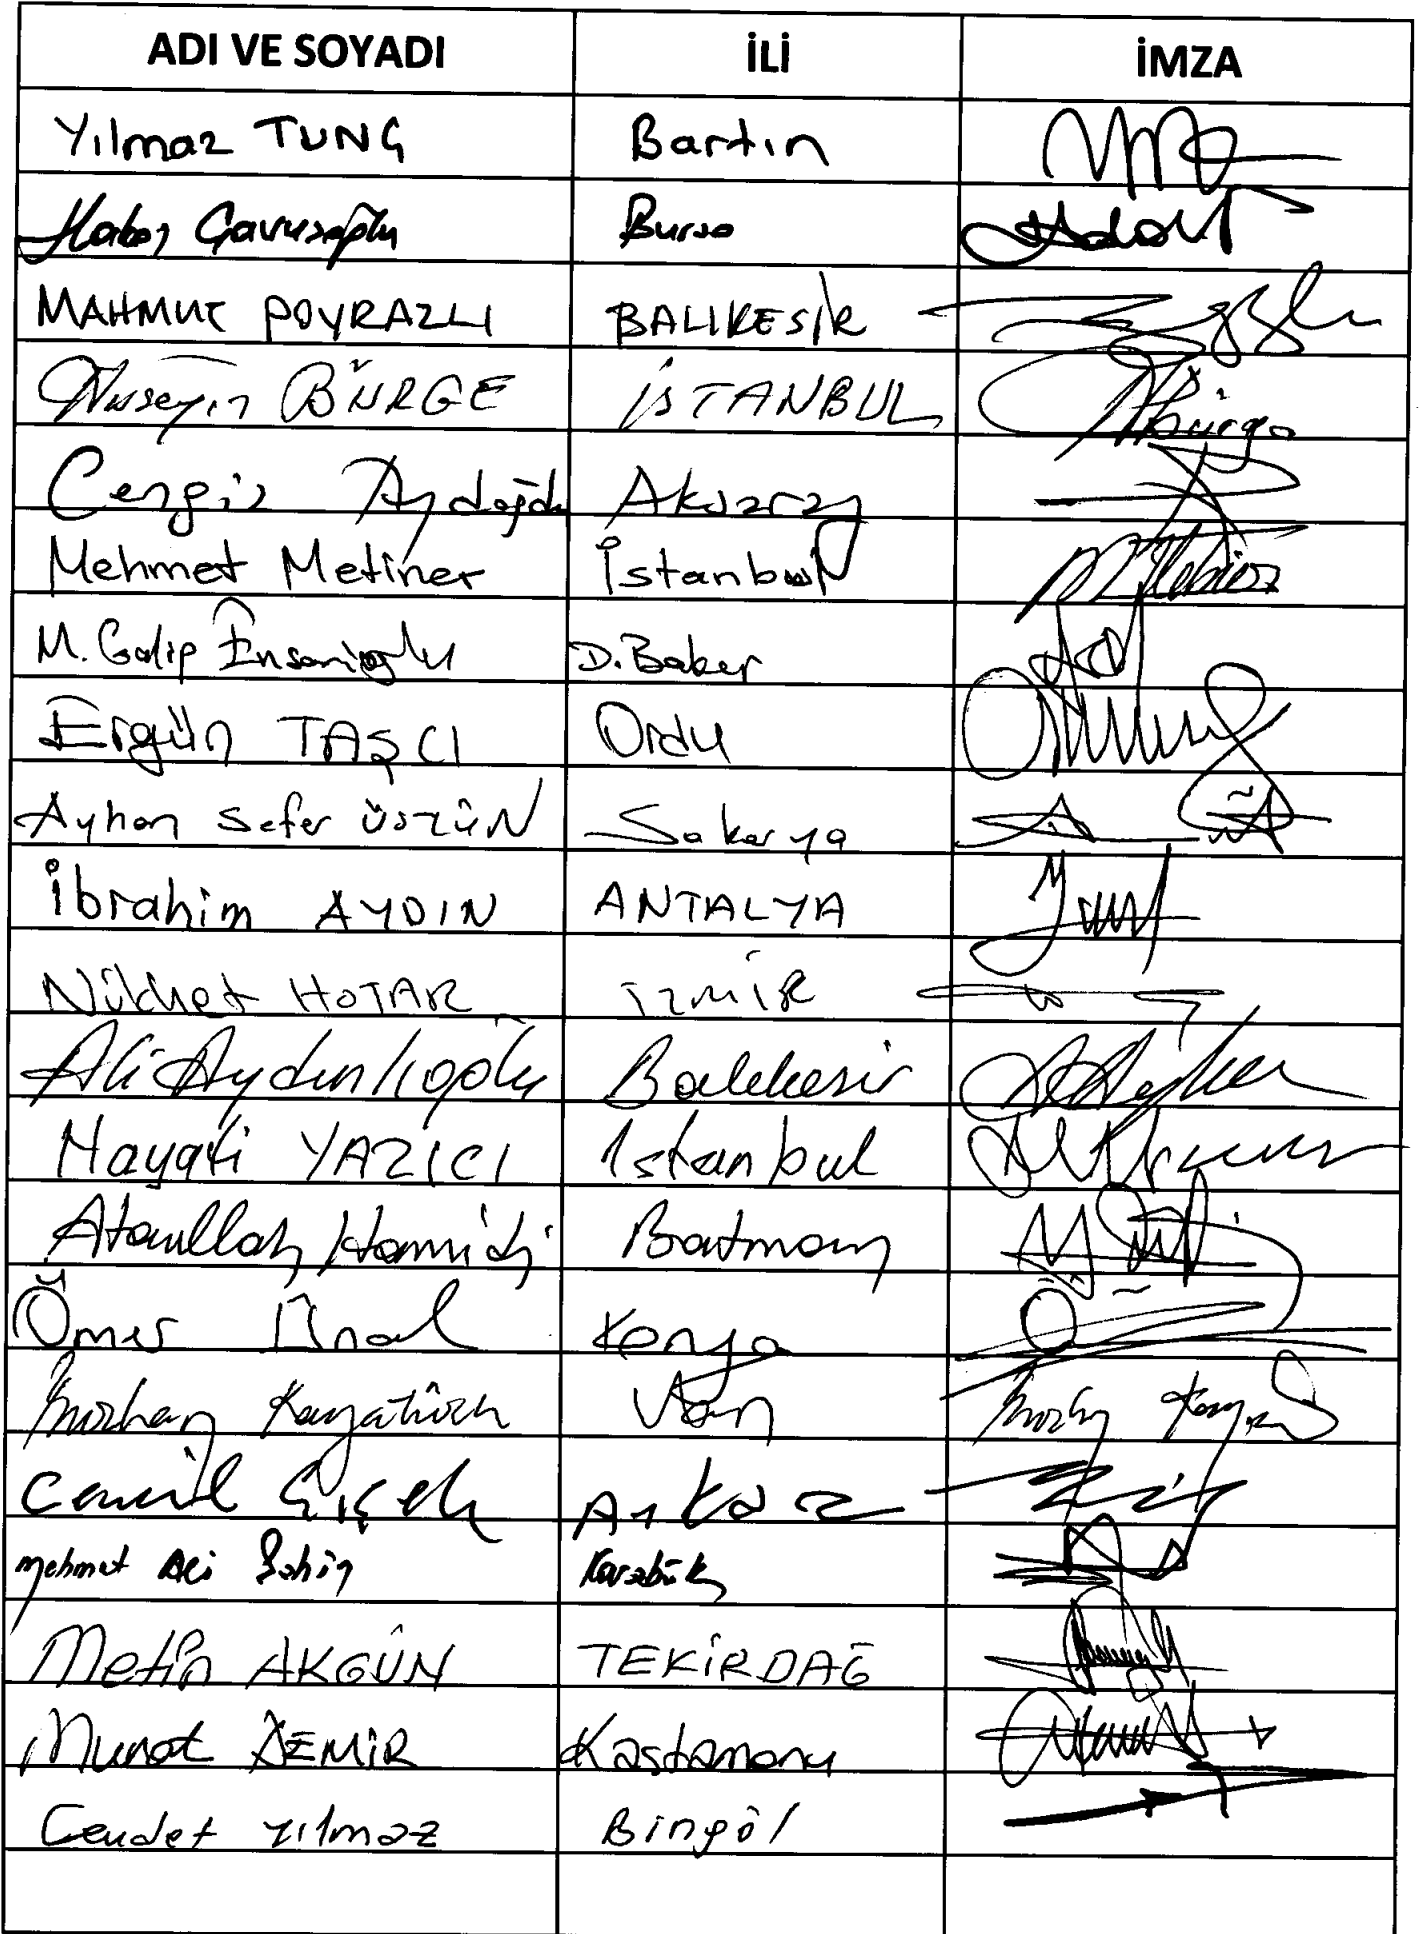 ADI VE SOYADI İLİ İMZA
Yılmaz TUNÇ Bartın
Hakan Çavuşoğlu Bursa
MAHMUT POYRAZLI BALIKESİR
Hüseyin BÜRGE İSTANBUL
Cengiz Aydoğdu Aksaray
Mehmet Metiner İstanbul
M. Galip Ensarioğlu D. Baker
Ergün TAŞCI Ordu
Ayhan Sefer ÜSTÜN Sakarya
İbrahim AYDIN ANTALYA
Nükhet HOTAR İZMİR
Ali Aydınlıoğlu Balıkesir
Hayati YAZICI Istanbul
Ataullah Hamidi Batman
Ömer Ünal Konya
Burhan Kayatürk Van
Cemil Çiçek
Mehmet Ali Şahin Karabük
Metin AKGÜN TEKİRDAĞ
Murat DEMİR Kastamonu
Cevdet Yılmaz Bingöl